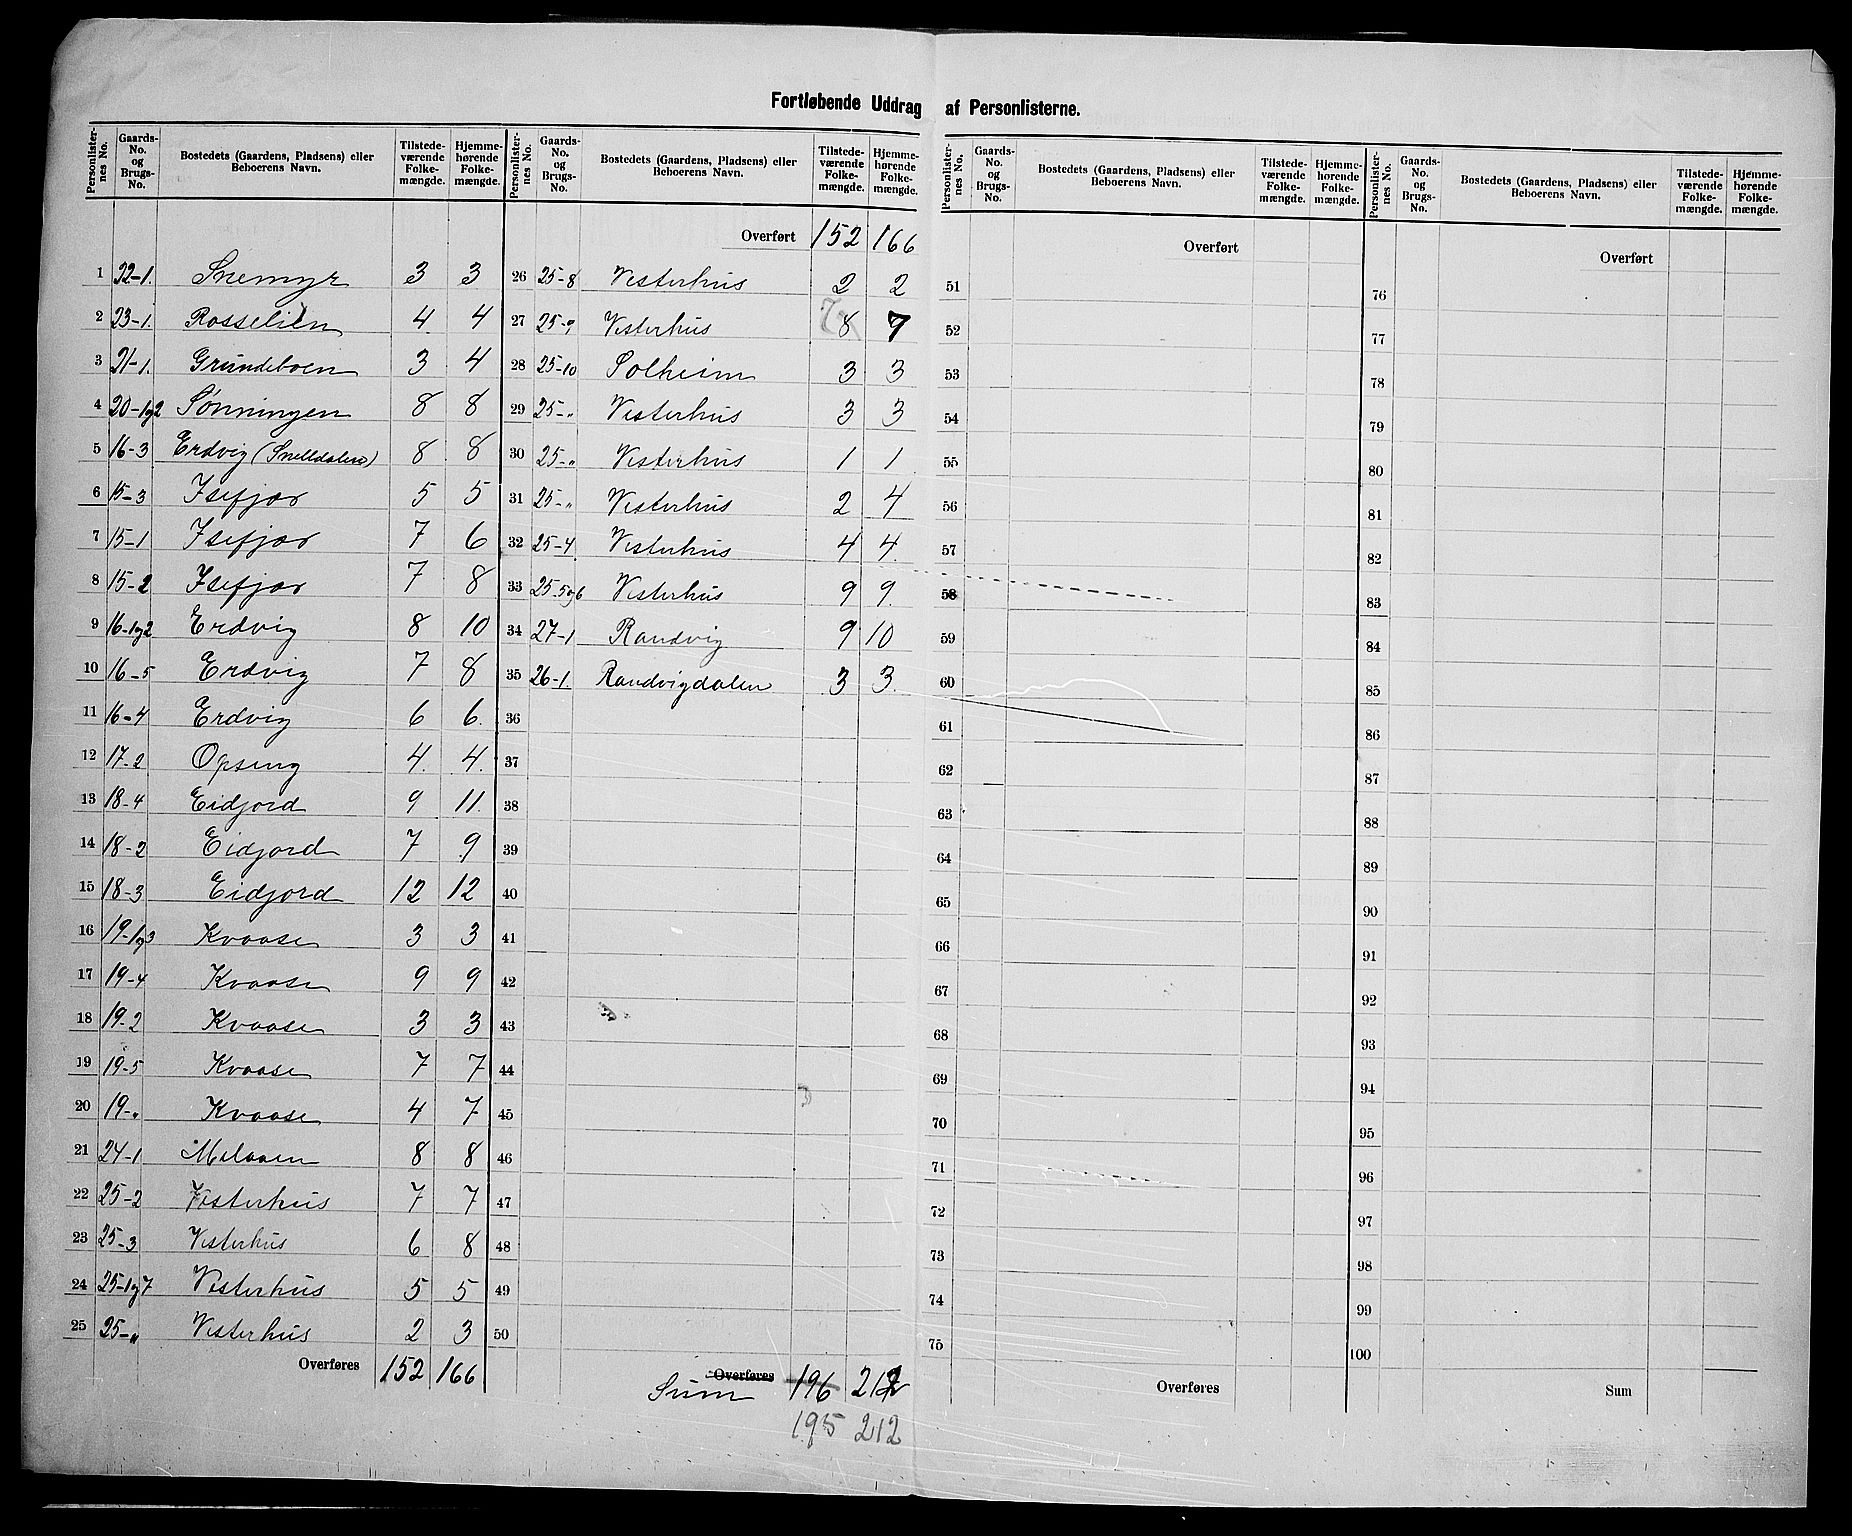 Fortløbende Uddrag af Personlisterne.
Personlister-nes No. | Gaards-No. og Brugs-No. | Bostedets (Gaardens, Pladsens) eller Beboerens Navn. | Tilstede-værende Folke-mængde. | Hjemme-hørende Folke-mængde.
1 22-1. Snemyr 3 3
2 23-1. Rosselien 4 4
3 21-1. Grundeboen 3 4
4 20-1og2 Sønningen 8 8
5 16-3 Erdvig (Snelldalen) 8 8
6 15-3 Isefjær 5 5
7 15-1 Isefjær 7 6
8 15-2 Isefjær 7 8
9 16-1og2 Erdvig 8 10
10 16-5 Erdvig 7 8
11 16-4 Erdvig 6 6.
12 17-2 Opsung 4. 4.
13 18-4 Eidjord 9 11.
14 18-2 Eidjord 7 9
15 18-3 Eidjord 12 12
16 19-1og3 Kvaase 3 3
17 19-4 Kvaase 9 9
18 19-2 Kvaase 3 3
19 19-5 Kvaase 7 7
20 19-„ Kvaase 4 7
21 24-1 Melaaen 8 8
22 25-2 Vesterhus 7 7
23 25-3 Vesterhus 6 8
24 25-1og7 Vesterhus 5 5
25 25-„ Vesterhus 2 3
Overføres 152 166
Personlister-nes No. | Gaards-No. og Brugs-No. | Bostedets (Gaardens, Pladsens) eller Beboerens Navn. | Tilstede-værende Folke-mængde. | Hjemme-hørende Folke-mængde.
Overført 152 166
26 25-8 Vesterhus 2 2
27 25-9 Vesterhus 7 8 7
28 25-10 Solheim 3 3
29 25-„ Vesterhus 3 3
30 25-„ Vesterhus 1 1
31 25-„ Vesterhus 2 4
32 25-4 Vesterhus 4 4.
33 25-5og6 Vesterhus 9 9.
34 27-1 Randvig 9 10
35 26-1. Randvigdalen 3 3.
36
37
38
39
40
41
42
43
44
45
46
47
48
49
50
Overføres
Sum 196 212
195 212
Personlister-nes No. | Gaards-No. og Brugs-No. | Bostedets (Gaardens, Pladsens) eller Beboerens Navn. | Tilstede-værende Folke-mængde. | Hjemme-hørende Folke-mængde.
Overført
51
52
53
54
55
56
57
58
59
60
61
62
63
64
65
66
67
68
69
70
71
72
73
74
75
Overføres
Personlister-nes No. | Gaards-No. og Brugs-No. | Bostedets (Gaardens, Pladsens) eller Beboerens Navn. | Tilstede-værende Folke-mængde. | Hjemme-hørende Folke-mængde.
Overført
76
77
78
79
80
81
82
83
84
85
86
87
88
89
90
91
92
93
94
95
96
97
98
99
100
Sum